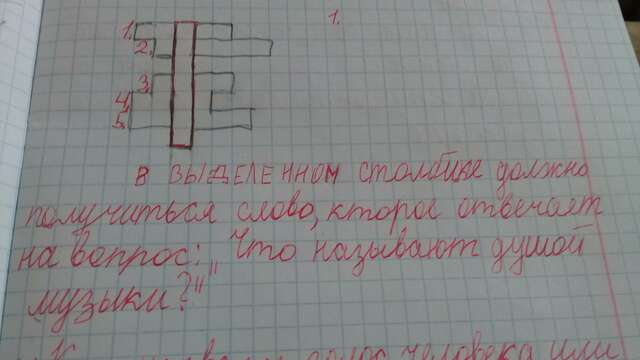 1.
1.
2.
3.
4.
5.
в выделенном столбике должно
получиться слово, кторое отвечает
на вопрос: „Что называют душой
музыки?"
голос человека или